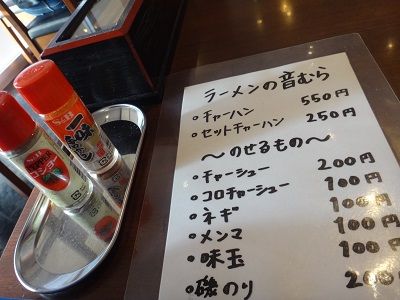 ラーメンの音むら
。チャーハン 550円
。セットチャーハン 250円
～のせるもの～
。チャーシュー 200円
。コロチャーシュー 100円
。ネギ 100円
。メンマ 100円
。味玉 100円
。磯のり 200円
S&B
一味